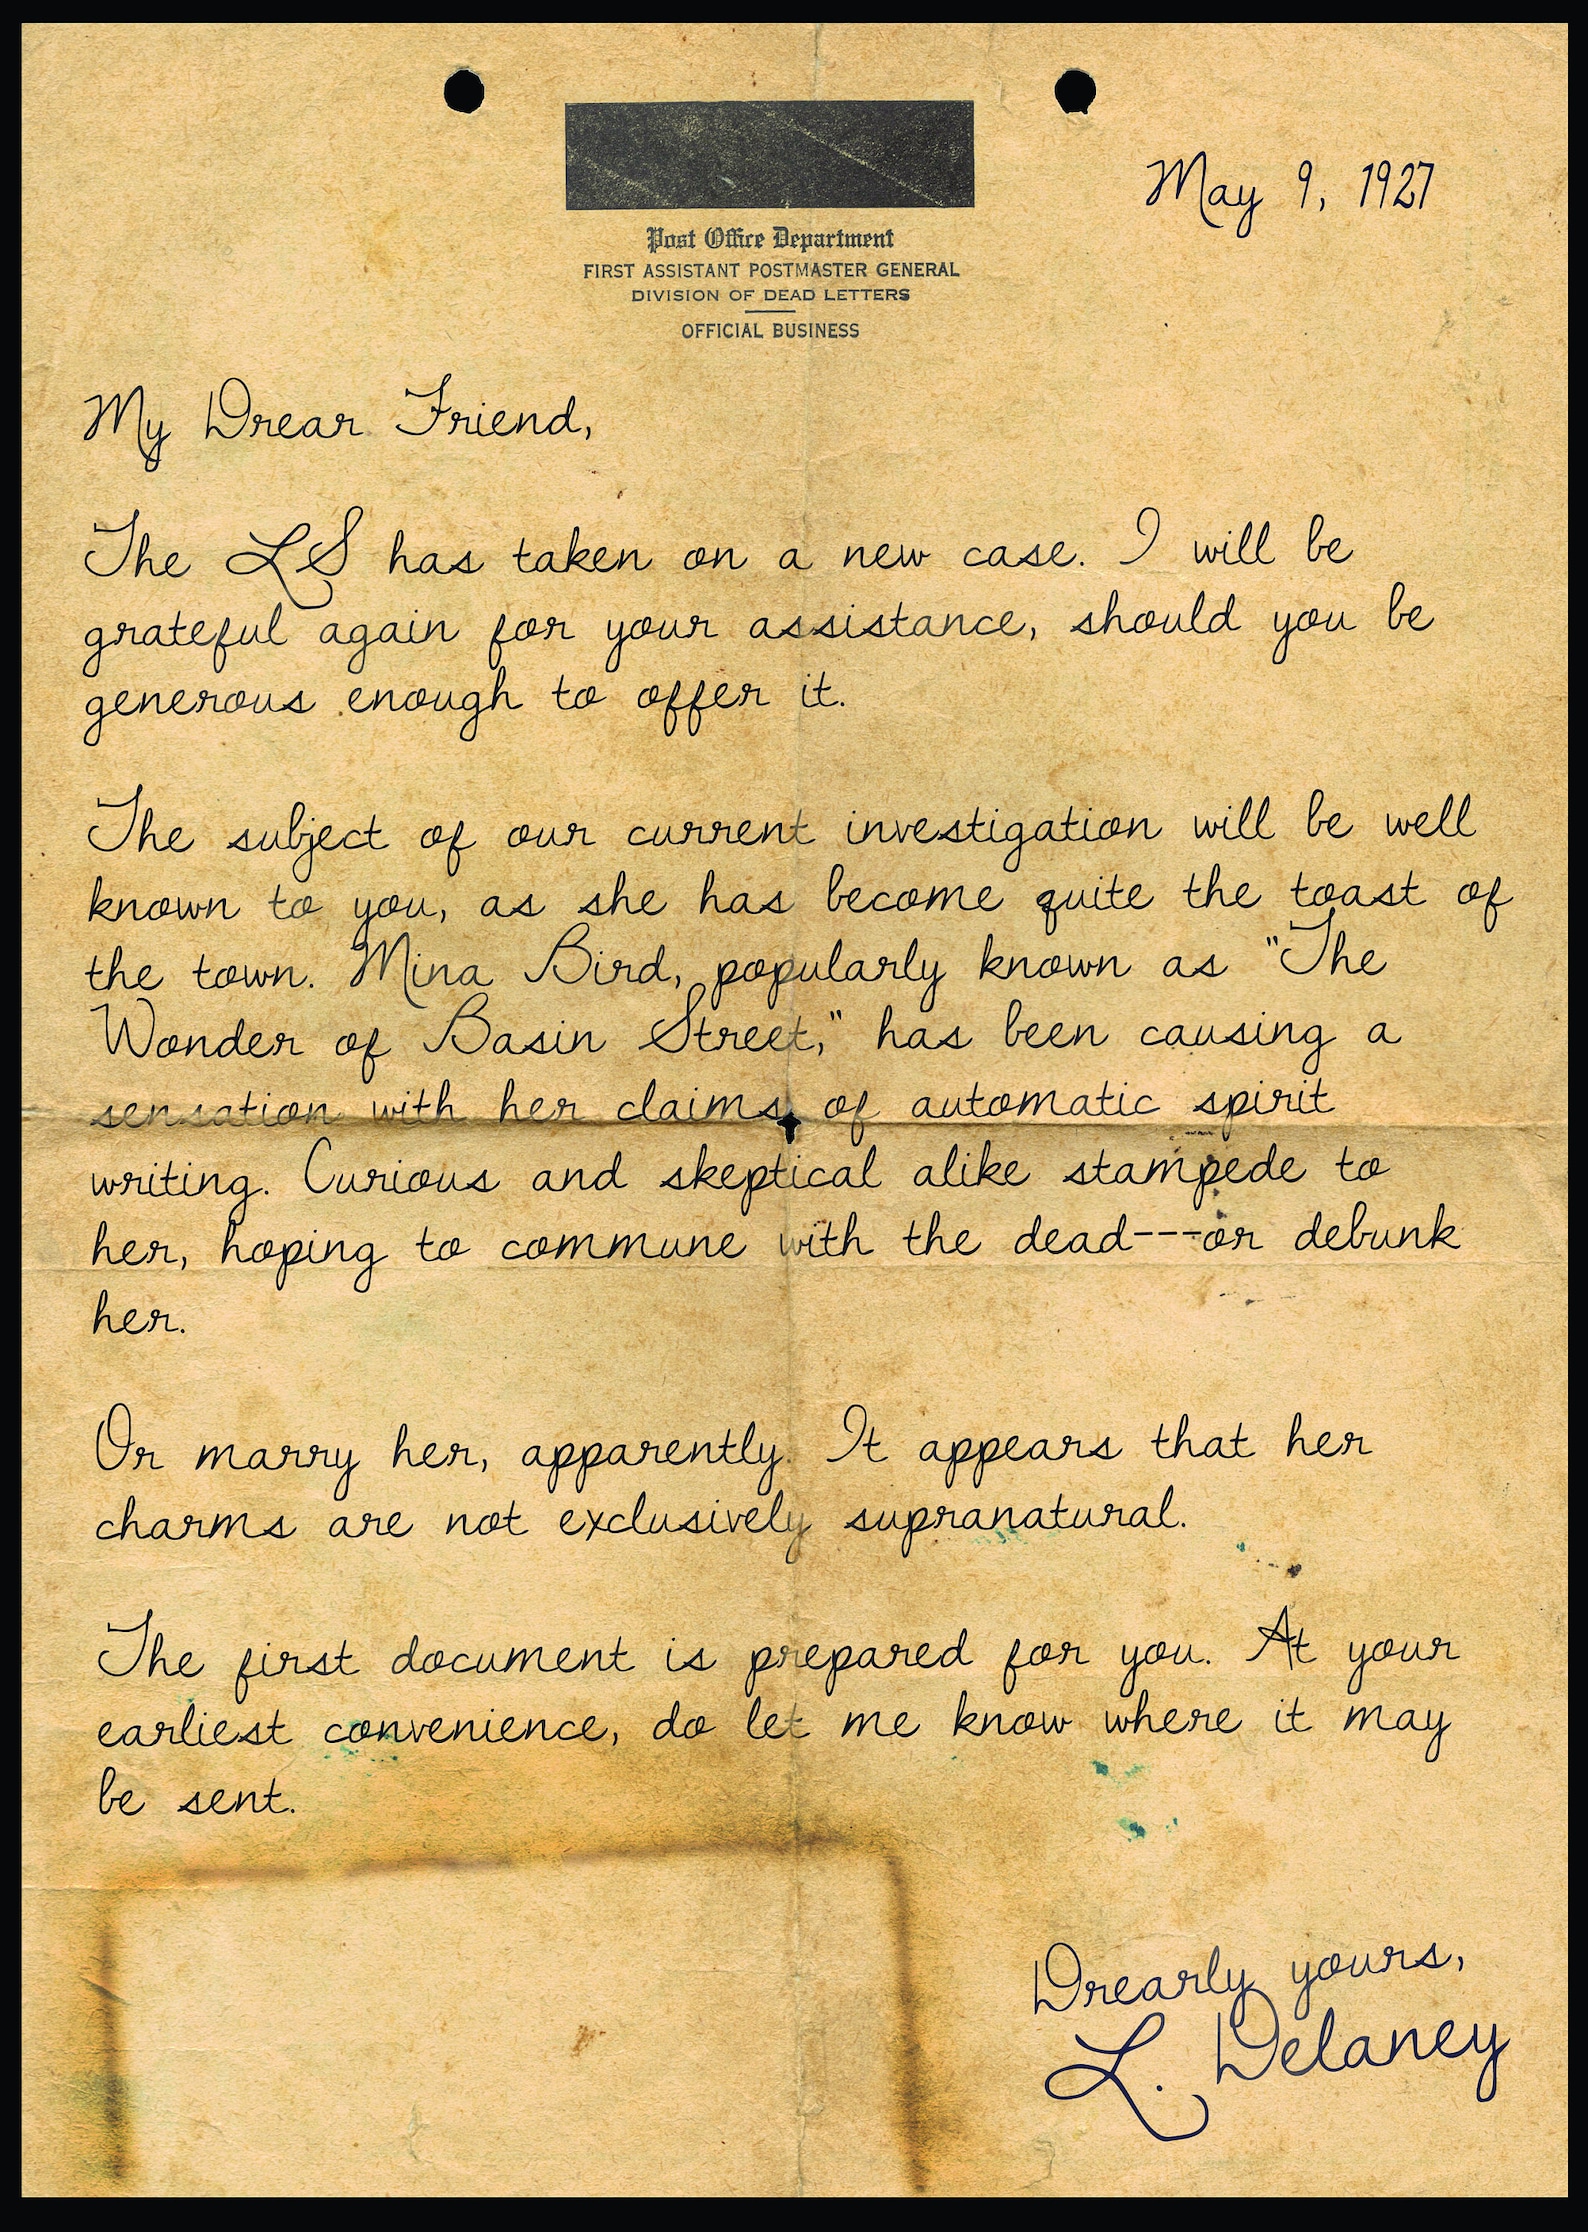 May 9, 1927
Post Office Department
FIRST ASSISTANT POSTMASTER GENERAL
DIVISION OF DEAD LETTERS
OFFICIAL BUSINESS
My Drear Friend,
The LS has taken on a new case. I will be
grateful again for your assistance, should you be
generous enough to offer it.
The subject of our current investigation will be well
known to you, as she has become quite the toast of
the town. Mina Bird, popularly known as "The
Wonder of Basin Street," has been causing a
sensation with her claims of automatic spirit
writing. Curious and skeptical alike stampede to
her, hoping to commune with the dead---or debunk
her.
Or marry her, apparently. It appears that her
charms are not exclusively supranatural.
The first document is prepared for you. At your
earliest convenience, do let me know where it may
be sent.
Drearly yours,
L. Delaney